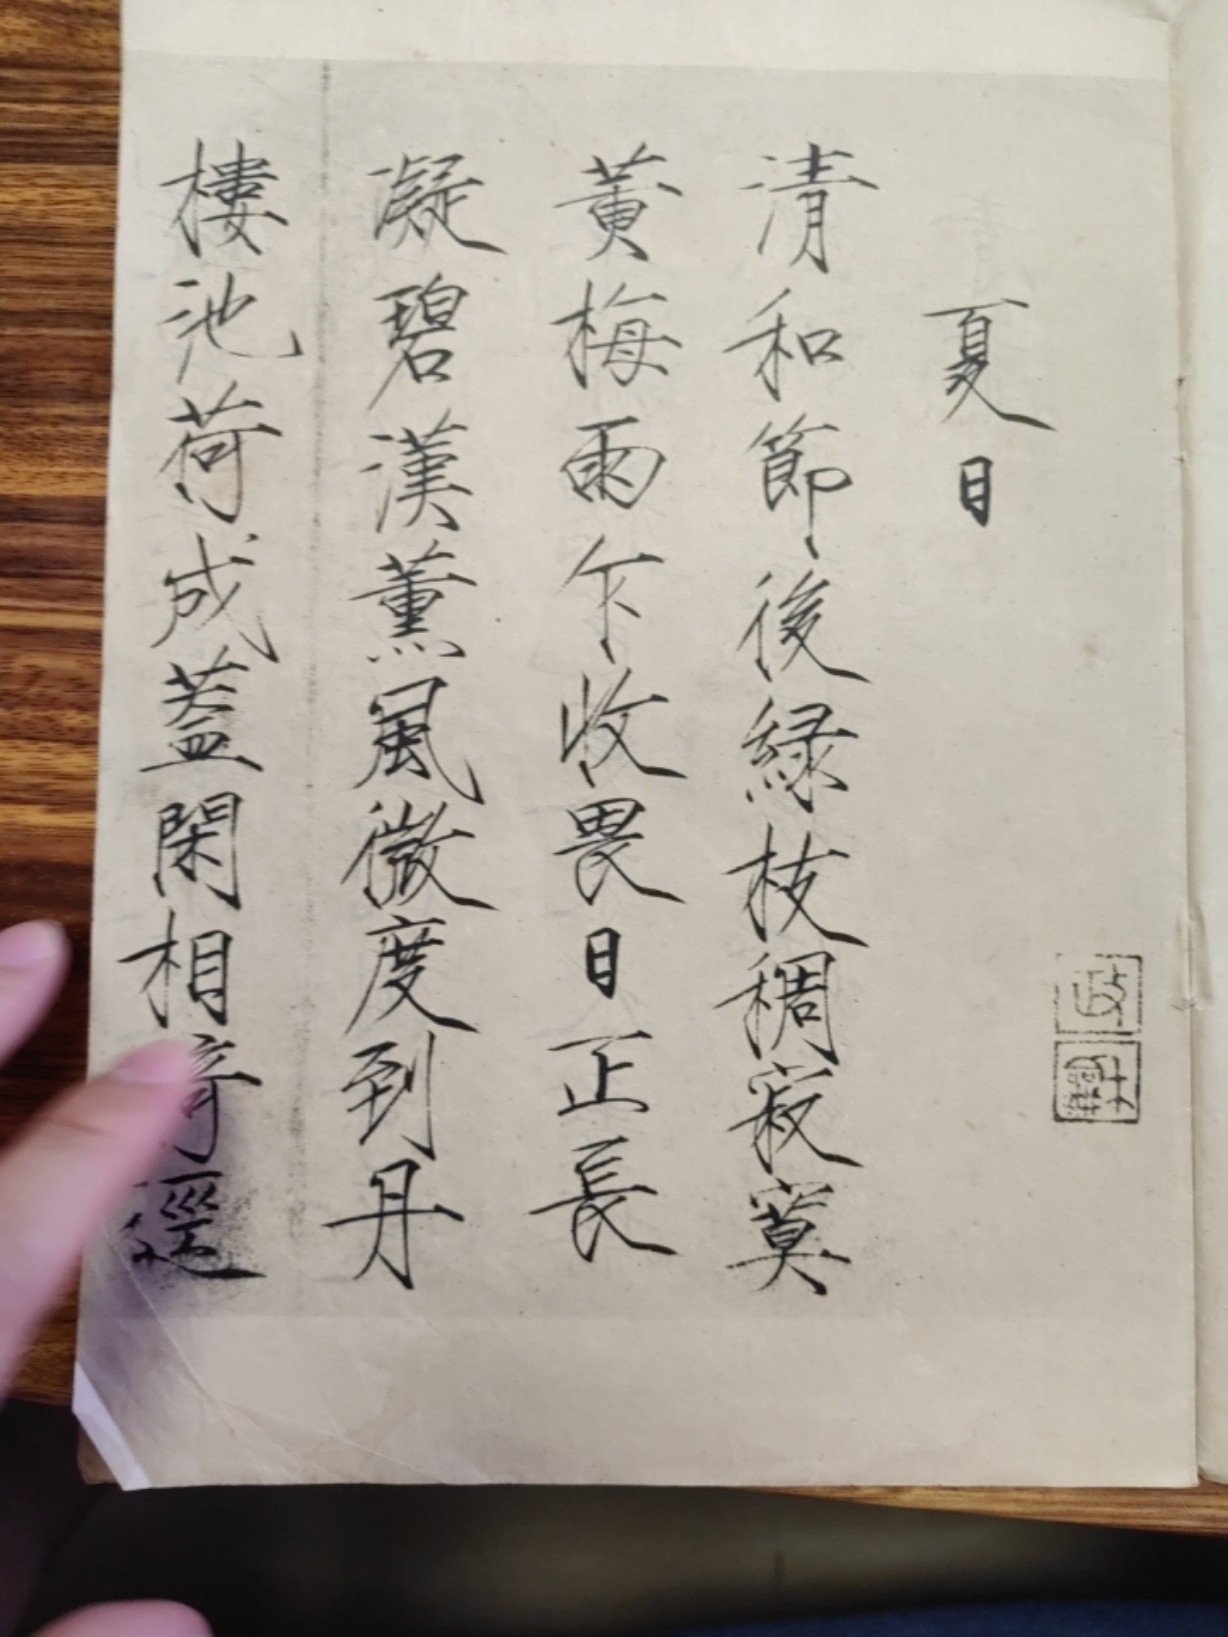 夏日
清和節後緑枝稠寂寞
黄梅雨乍收畏日正長
凝碧漢薰風微度到丹
樓池荷成蓋閑相倚逕